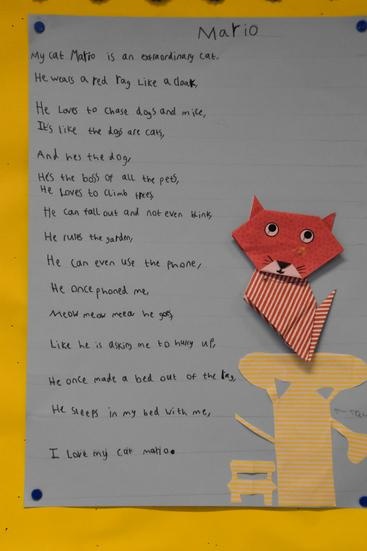 Mario
My cat Mario is an extraordinary cat.
He wears a red rag like a cloak,
He loves to chase dogs and mice,
It's like the dogs are cats,
And hes the dog,
He's the boss of all the pets,
He loves to climb trees
He can fall out and not even blink,
He rules the garden,
He can even use the phone,
He once phoned me,
Meow meow meow he goes,
Like he is asking me to hurry up,
He once made a bed out of the rag,
He sleeps in my bed with me,
I love my cat mario.